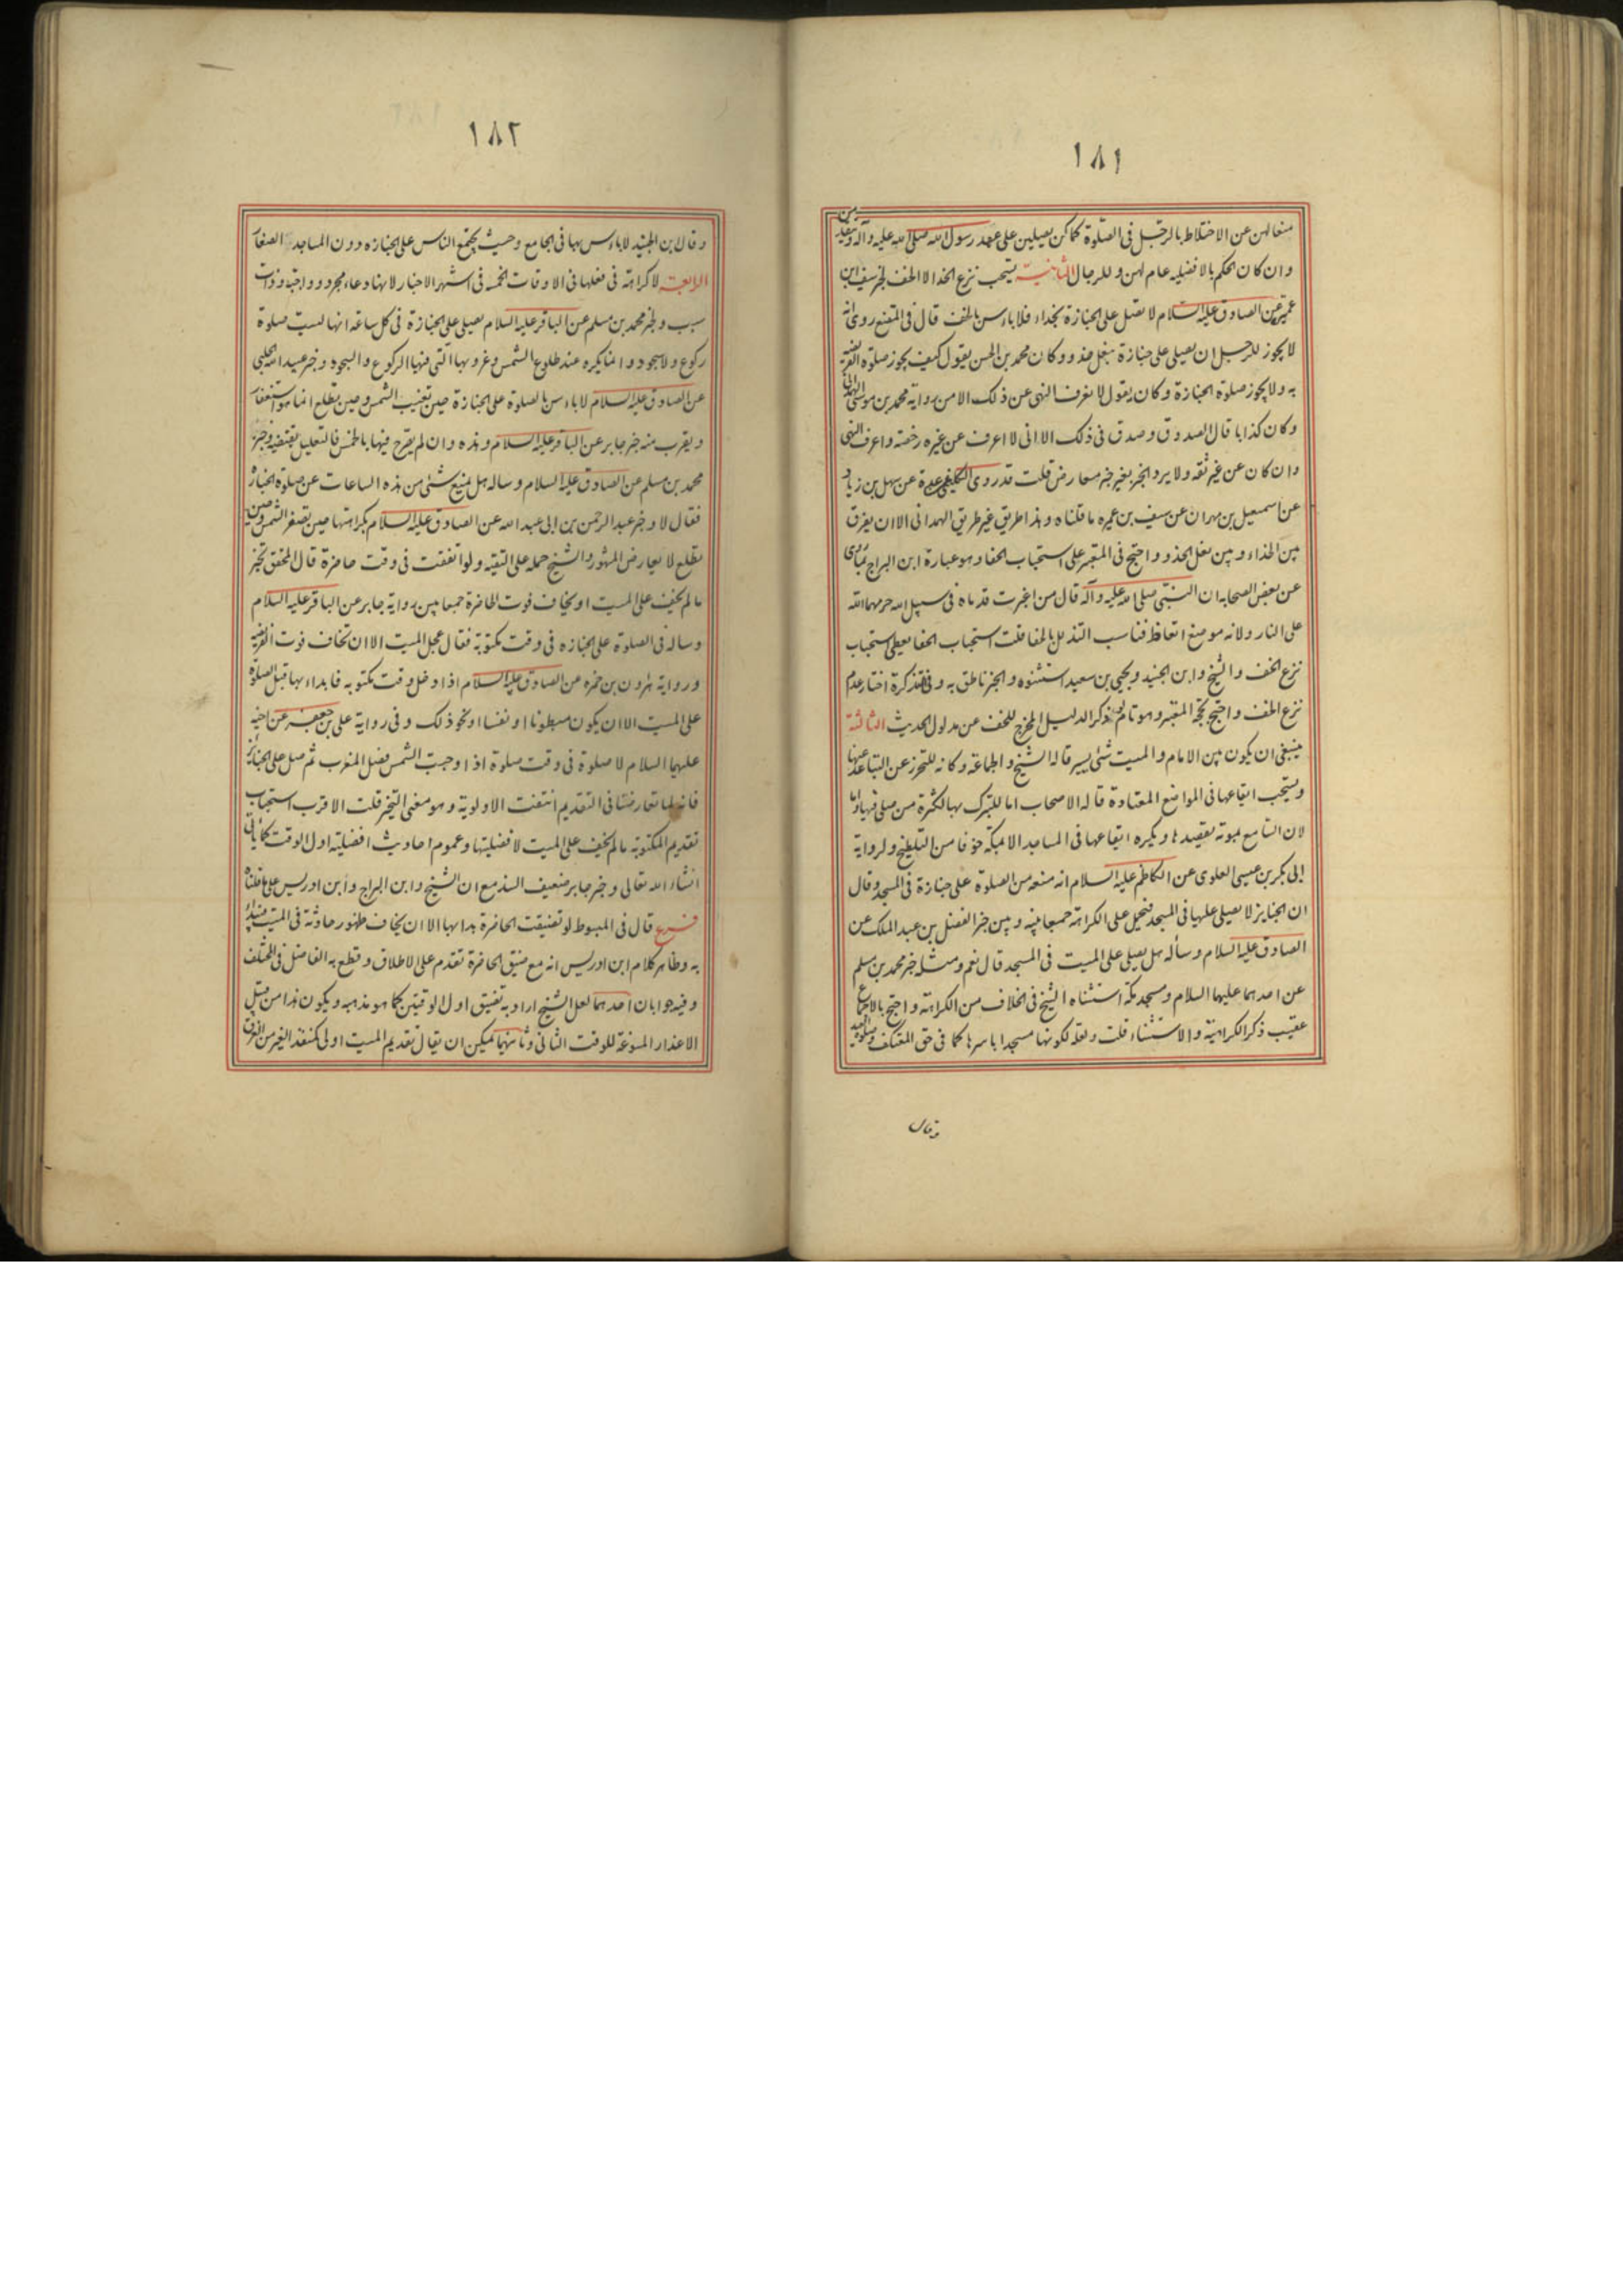 ١٨١
منعا لهن عن الاختلاط بالرجل فى الصلوة كما كن يصلين على عهد رسول الله صلى الله عليه وآله
وان كان الحكم بالافضليه عام لهن وللرجال الثانية يستحب نزع الحذا لا الخف لخبر سيف بن
عميرة عن الصادق عليه السلام لا تصل على الجنازة بحذاء فلا باءس بالخف قال فى المقنع روى انه
لا يجوز للرجل ان يصلى على جنازة بنعل حذو وكان محمد بن الحسن يقول كيف يجوز صلوة الفريضة
به ولا يجوز صلوة الجنازة وكان يقول لا نعرف النهى عن ذلك الا من رواية محمد بن موسى الهمدانى
وكان كذابا قال الصدوق وصدق فى ذلك الا انى لا اعرف عن غيره رخصة واعرف النهى
وان كان عن غير ثقه ولا يرد الخبر بغير خبر معارض قلت قد روى الكلينى عن عدة عن سهل بن زياد
عن اسمعيل بن مهران عن سيف بن عميره ما قلناه وهذا طريق غير طريق الهمدانى الا ان يفرق
بين الحذاء وبين نعل الحذو واحتج فى المعتبر على استحباب الحفا وهو عبارة ابن البراج بما روى
عن بعض الصحابه ان النبى صلى الله عليه وآله قال من اغبرت قدماه فى سبيل الله حرمهما الله
على النار ولانه موضع اتعاظ فناسب التذلل بالحفا قلت استحباب الحفا يعطى استحباب
نزع الخف والشيخ وابن الجنيد ويحيى بن سعيد استثنوه والخبر ناطق به وفى التذكرة اختار عدم
نزع الخف واحتج بحجة المعتبر وهو تام لو ذكر الدليل المخرج للخف عن مدلول الحديث الثالثة
ينبغى ان يكون بين الامام والميت شىء يسير قاله الشيخ والجماعة وكانه للتحرز عن التباعد عنها
ويستحب ايقاعها فى المواضع المعتادة قاله الاصحاب اما للتبرك بها لكثرة من صلى فيها واما
لان السامع بموته يقصدها ويكره ايقاعها فى المساجد الا بمكة خوفا من التلطيخ ولرواية
ابى بكر بن عيسى العلوى عن الكاظم عليه السلام انه منعه من الصلوة على جنازة فى المسجد وقال
ان الجنايز لا يصلى عليها فى المسجد فيحمل على الكراهة جمعا بينه وبين خبر الفضل بن عبد الملك عن
الصادق عليه السلام وسأله هل يصلى على الميت فى المسجد قال نعم ومثله خبر محمد بن مسلم
عن احدهما عليهما السلام ومسجد مكة استثناه الشيخ فى الخلاف من الكراهة واحتج بالاجماع
عقيب ذكر الكراهية والاستثناء قلت ولعله لكونها مسجدا باسرها كما فى حق المعتكف وصلوة العيد
وقال
١٨٢
وقال بن الجنيد لا باءس بها فى الجامع وحيث يجتمع الناس على الجنازه دون المساجد الصغار
الرابعة لا كراهة فى فعلها فى الاوقات الخمسه فى اشهر الاخبار لانها دعاء مجرد وواجبة وذات
سبب ولخبر محمد بن مسلم عن الباقر عليه السلام يصلى على الجنازة فى كل ساعة انها ليست صلوة
ركوع ولا سجود وانما يكره عند طلوع الشمس وغروبها التى فيها الركوع والسجود وخبر عبيد الله الحلبى
عن الصادق عليه السلام لا باءس بالصلوة على الجنازة حين تغيب الشمس وحين تطلع انما هو استغفار
ويقرب منه خبر جابر عن الباقر عليه السلام وهذه وان لم يصرح فيها بالخمس فالتعليل يقتضيه وخبر
محمد بن مسلم عن الصادق عليه السلام وساله هل يمنع شىء من هذه الساعات عن صلوة الجنازة
فقال لا وخبر عبد الرحمن بن ابى عبد الله عن الصادق عليه السلام بكراهتها حين تصفر الشمس وحين
تطلع لا يعارض المشهور والشيخ حمله على التقيه ولو اتفقت فى وقت حاضرة قال المحقق تخير
ما لم يخف على الميت او يخاف فوت الحاضرة جمعا بين رواية جابر عن الباقر عليه السلام
وساله فى الصلوة على الجنازه فى وقت مكتوبة فقال عجل الميت الا ان تخاف فوت الفريضة
ورواية هارون بن حمزه عن الصادق عليه السلام اذا دخل وقت مكتوبه فابداء بها قبل الصلوة
على الميت الا ان يكون مبطونا او نفسا او نحو ذلك وفى رواية على بن جعفر عن اخيه
عليهما السلام لا صلوة فى وقت صلوة اذا وجبت الشمس فصل المغرب ثم صل على الجنائز
فانهما تعارضتا فى التقديم انتفت الاولوية وهو معنى التخير قلت الاقرب استحباب
تقديم المكتوبة ما لم يخف على الميت لافضليتها وعموم احاديث افضلية اول الوقت كما ياتى
انشاء الله تعالى وخبر جابر ضعيف السند مع ان الشيخ وابن البراج وابن ادريس على ما قلناه
فرع قال فى المبسوط لو تضيقت الحاضرة بدا بها الا ان يخاف ظهور حادثة فى الميت فيبداء
به وظاهر كلام ابن ادريس انه مع ضيق الحاضرة تقدم على الاطلاق وقطع به الفاضل فى المختلف
وفيه جوابان احدهما لعل الشيخ اراد به تضيق اول الوقتين كما هو مذهبه ويكون هذا من قبل
الاعذار المسوغة للوقت الثانى وثانيهما يمكن ان يقال تقديم الميت اولى كمنقذ الغير من الغرق